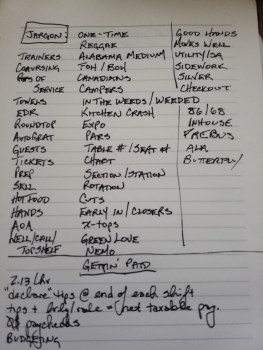 JARGON: ONE-TIME
REGGAE
TRAINERS ALABAMA MEDIUM
COURSING FOH / BOH
OF CANADIANS
SERVICE CAMPERS
TOWELS IN THE WEEDS / WEEDED
EDR KITCHEN CRASH
ROUNDTOP EXPO
AUTOGRAT PARS
GUESTS TABLE # / SEAT #
TICKETS CHART
PREP SECTION / STATION
SELL ROTATION
HOT FOOD CUTS
HANDS EARLY IN / CLOSERS
AOA X-TOPS
WELL / CALL / GREEN LOVE
TOPSHELF NEMO
GOOD HANDS
MOVES WELL
UTILITY/SA
SIDEWORK
SILVER
CHECKOUT
86/68
INHOUSE
FIREBUS
ALA
BUTTERFLY/
GETTIN' PAID
2.13/hr
"declare" tips @ end of each shift
tips + hrly/rate = net taxable pay.
paychecks
BUDGETING